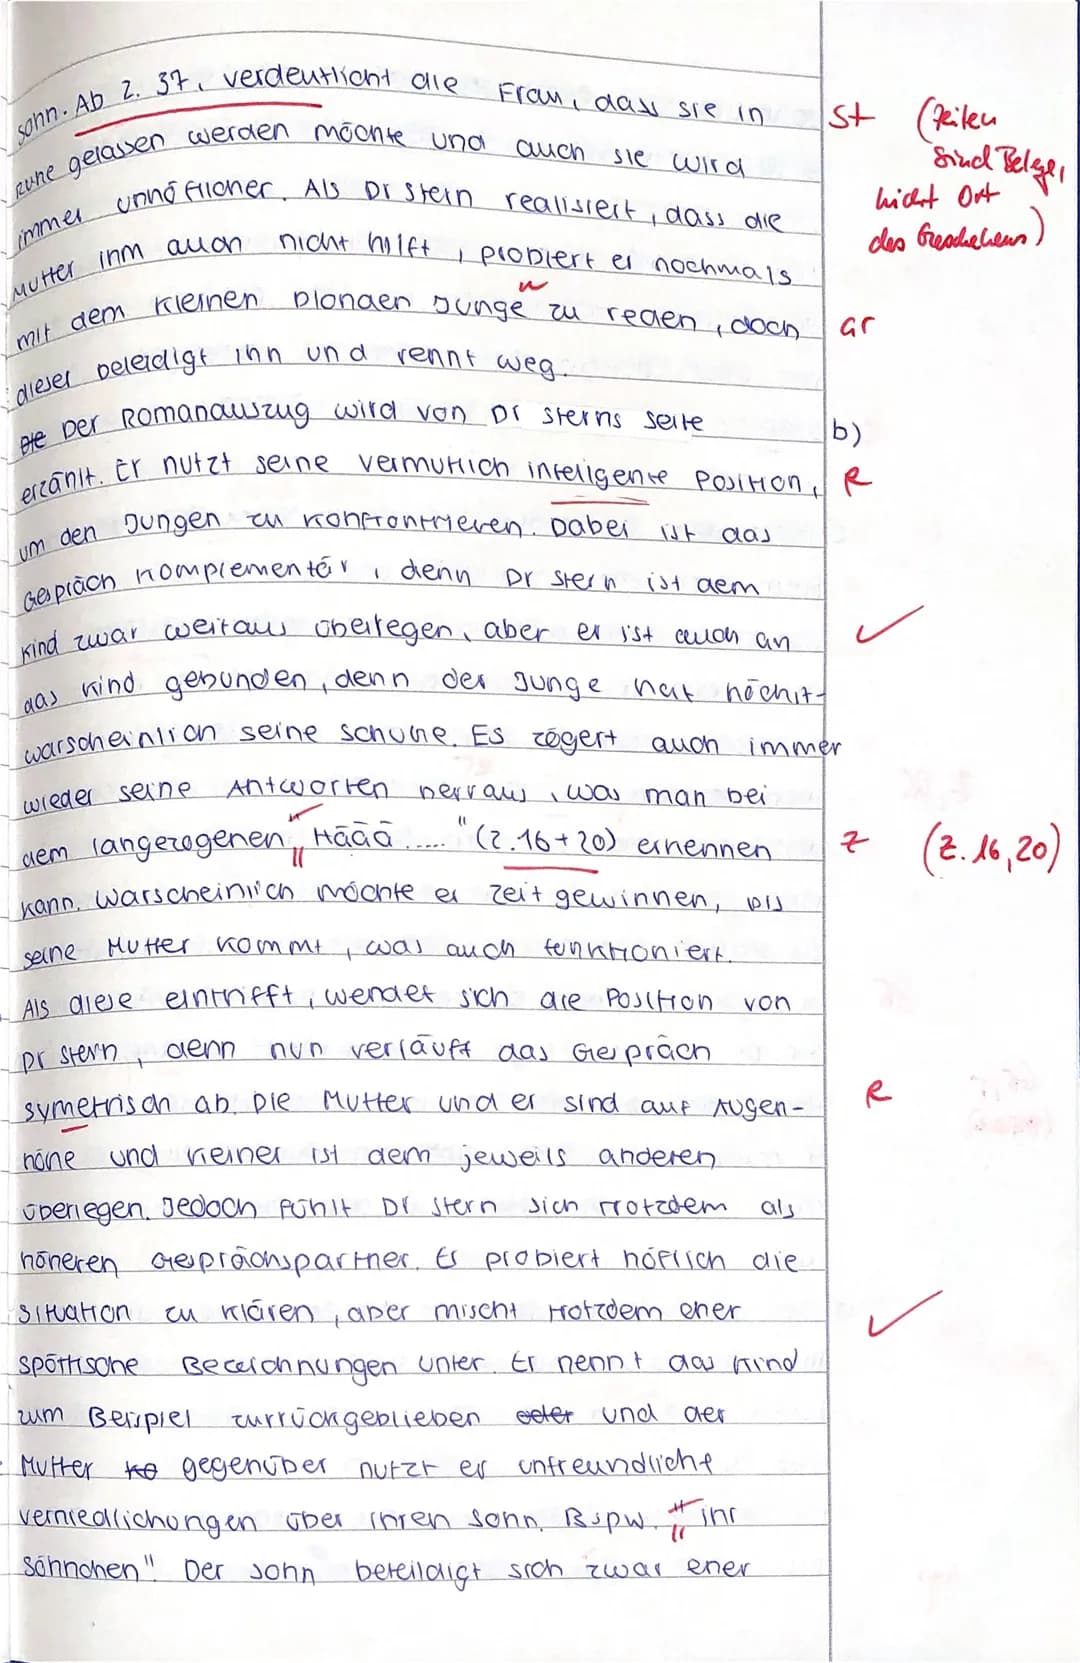 sohn. Ab Z. 37, verdeutlicht die Frau, dass sie in
St (Zeilen
Ruhe gelassen werden möchte und auch sie wird
sind Belege,
immer unhöflicher. Als Dr Stern realisiert, dass die
nicht Ort
Mutter ihm auch nicht hilft, probiert er nochmals
des Geschehens)
mit dem kleinen blonden Junge zu reden, doch
Gr
dieser beleidigt ihn und rennt weg.
Die Der Romanauszug wird von Dr Sterns Seite
b)
erzählt. Er nutzt seine vermutlich inteligente Position,
R
um den Jungen zu konfrontrieren. Dabei ist das
Gespräch komplementär, denn Dr Stern ist dem
Kind zwar weitaus überlegen, aber er ist auch an
✓
das Kind gebunden, denn der Junge hat höchst-
warscheinlich seine Schuhe. Es zögert auch immer
wieder seine Antworten herraus, was man bei
dem langezogenen "Häää....." (Z.16+20) erkennen
Z (Z. 16, 20)
kann. Warscheinlich möchte er Zeit gewinnen, bis
seine Mutter kommt, was auch funktioniert.
Als diese eintrifft, wendet sich die Position von
Dr Stern, denn nun verläuft das Gespräch
symetrisch ab. Die Mutter und er sind auf Augen-
R
höhe und keiner ist dem jeweils anderen
überlegen. Jedoch fühlt Dr Stern sich trotzdem als
höheren Gesprächspartner. Er probiert höflich die
Situation zu klären, aber mischt trotzdem eher
✓
spöttische Bezeichnungen unter. Er nennt das Kind
zum Beispiel zurrückgeblieben oder und der
Mutter gegenüber nutzt er unfreundliche
verniedlichungen über ihren Sohn. Bspw. "ihr
Söhnchen" Der Sohn beteildigt sich zwar eher